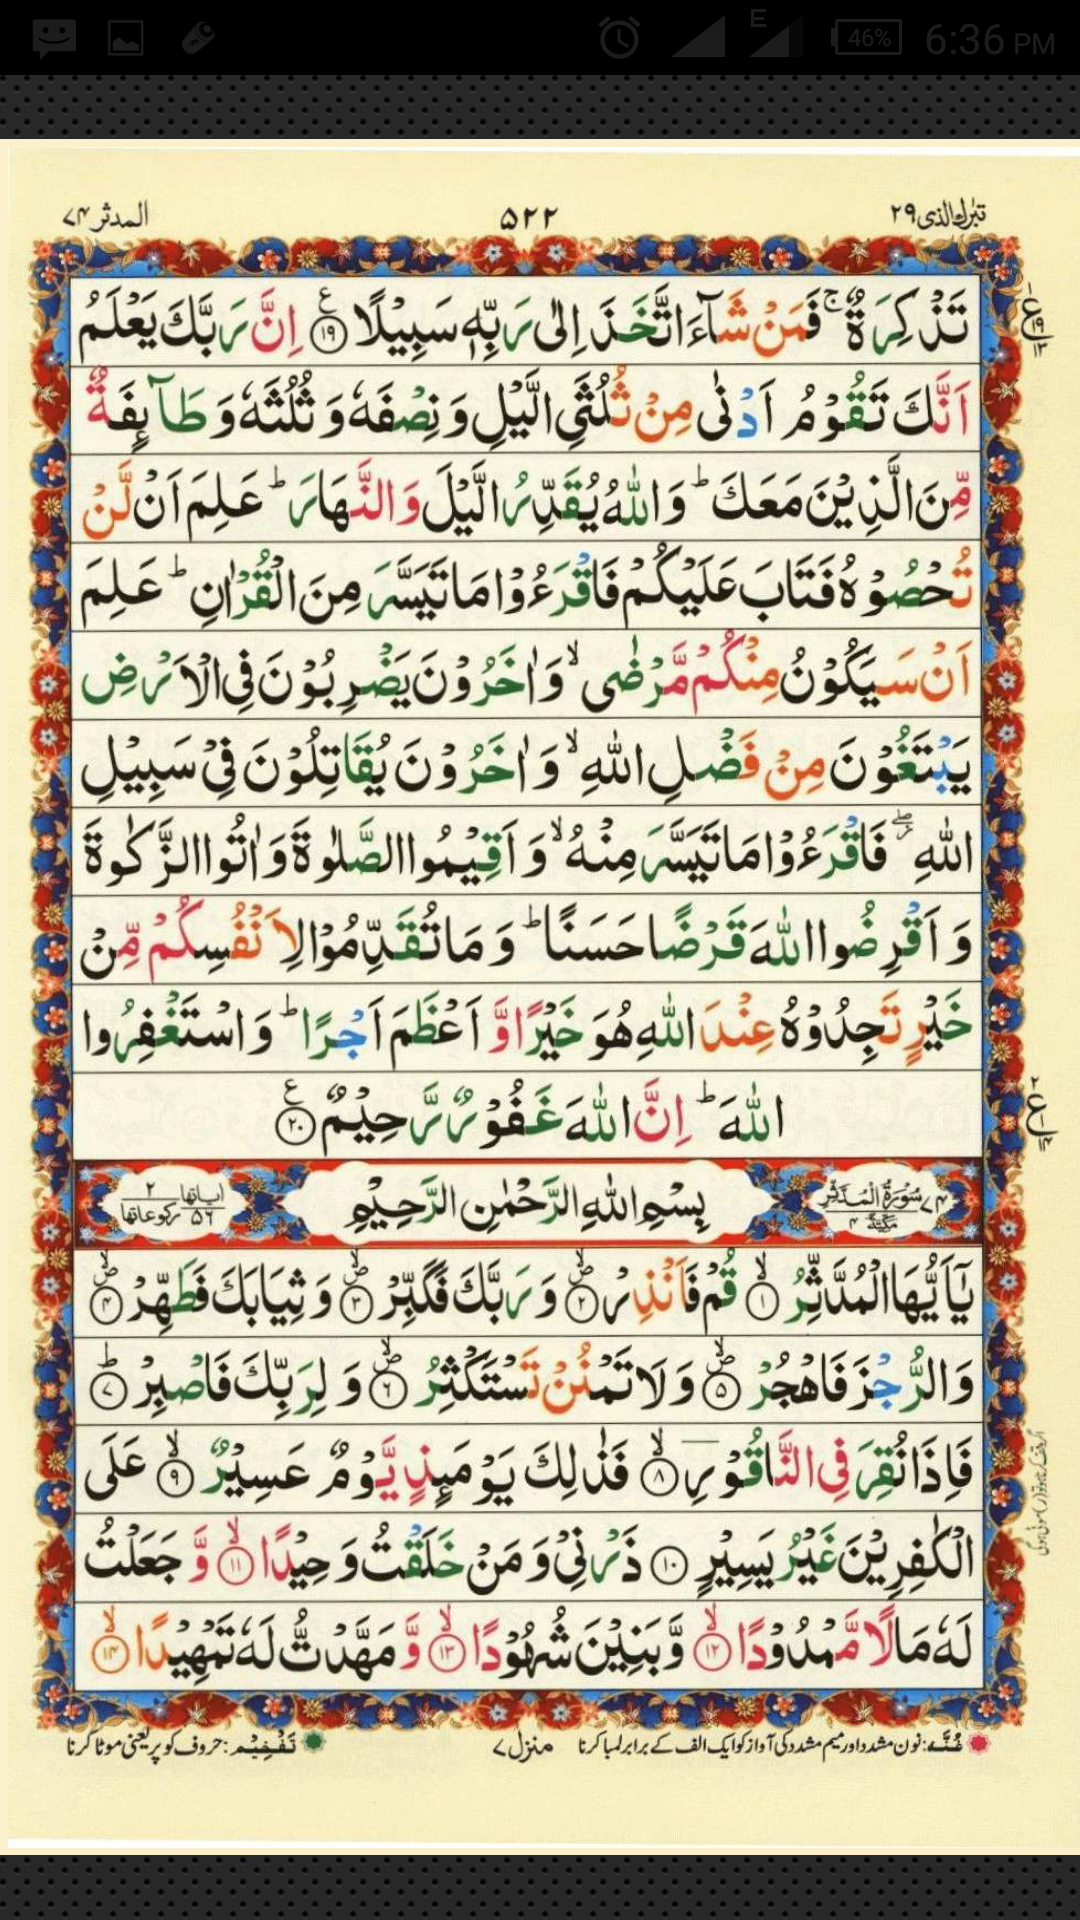 46% 6:36 PM
تبٰرك الذى ٢٩ ۵۲۲ المدثر ٧۴
تَذْكِرَةٌ ۚ فَمَنْ شَآءَ اتَّخَذَ اِلٰى رَبِّهٖ سَبِيْلًا ﴿۱۹﴾ اِنَّ رَبَّكَ يَعْلَمُ
اَنَّكَ تَقُوْمُ اَدْنٰى مِنْ ثُلُثَىِ الَّيْلِ وَ نِصْفَهٗ وَ ثُلُثَهٗ وَ طَآئِفَةٌ
مِّنَ الَّذِيْنَ مَعَكَ ؕ وَ اللّٰهُ يُقَدِّرُ الَّيْلَ وَ النَّهَارَ ؕ عَلِمَ اَنْ لَّنْ
تُحْصُوْهُ فَتَابَ عَلَيْكُمْ فَاقْرَءُوْا مَا تَيَسَّرَ مِنَ الْقُرْاٰنِ ؕ عَلِمَ
اَنْ سَيَكُوْنُ مِنْكُمْ مَّرْضٰى ۙ وَ اٰخَرُوْنَ يَضْرِبُوْنَ فِى الْاَرْضِ
يَبْتَغُوْنَ مِنْ فَضْلِ اللّٰهِ ۙ وَ اٰخَرُوْنَ يُقَاتِلُوْنَ فِىْ سَبِيْلِ
اللّٰهِ ۖ فَاقْرَءُوْا مَا تَيَسَّرَ مِنْهُ ۙ وَ اَقِيْمُوا الصَّلٰوةَ وَ اٰتُوا الزَّكٰوةَ
وَ اَقْرِضُوا اللّٰهَ قَرْضًا حَسَنًا ؕ وَ مَا تُقَدِّمُوْا لِاَنْفُسِكُمْ مِّنْ
خَيْرٍ تَجِدُوْهُ عِنْدَ اللّٰهِ هُوَ خَيْرًا وَّ اَعْظَمَ اَجْرًا ؕ وَ اسْتَغْفِرُوا
اللّٰهَ ؕ اِنَّ اللّٰهَ غَفُوْرٌ رَّحِيْمٌ ﴿۲۰﴾
٧۴ سُوْرَةُ الْمُدَّثِّرِ مَكِّيَّةٌ ۴ بِسْمِ اللّٰهِ الرَّحْمٰنِ الرَّحِيْمِ اٰياتها ۵۶ ركوعاتها ۲
يٰۤاَيُّهَا الْمُدَّثِّرُ ۙ﴿۱﴾ قُمْ فَاَنْذِرْ ۪ۙ﴿۲﴾ وَ رَبَّكَ فَكَبِّرْ ۪ۙ﴿۳﴾ وَ ثِيَابَكَ فَطَهِّرْ ۪ۙ﴿۴﴾
وَ الرُّجْزَ فَاهْجُرْ ۪ۙ﴿۵﴾ وَ لَا تَمْنُنْ تَسْتَكْثِرُ ۪ۙ﴿۶﴾ وَ لِرَبِّكَ فَاصْبِرْ ؕ﴿۷﴾
فَاِذَا نُقِرَ فِى النَّاقُوْرِ ۙ﴿۸﴾ فَذٰلِكَ يَوْمَئِذٍ يَّوْمٌ عَسِيْرٌ ۙ﴿۹﴾ عَلَى
الْكٰفِرِيْنَ غَيْرُ يَسِيْرٍ ﴿۱۰﴾ ذَرْنِىْ وَ مَنْ خَلَقْتُ وَحِيْدًا ۙ﴿۱۱﴾ وَّ جَعَلْتُ
لَهٗ مَالًا مَّمْدُوْدًا ۙ﴿۱۲﴾ وَّ بَنِيْنَ شُهُوْدًا ۙ﴿۱۳﴾ وَّ مَهَّدْتُّ لَهٗ تَمْهِيْدًا ۙ﴿۱۴﴾
غُنَّہ: نون مشدد اور میم مشدد کی آواز کو ایک الف کے برابر لمبا کرنا منزل ۷ تَفْخِيْم: حروف کو پر یعنی موٹا کرنا